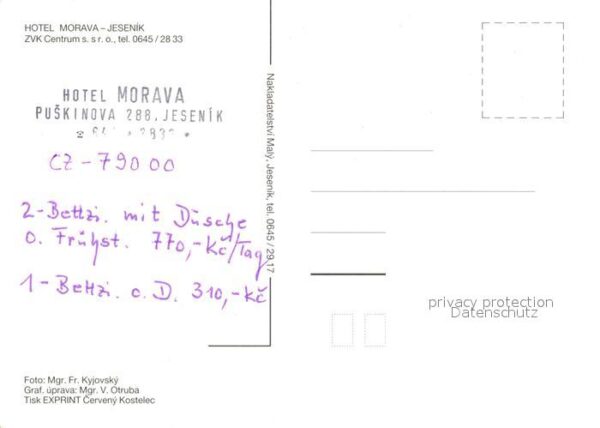 HOTEL MORAVA – JESENÍK
ZVK Centrum s. s r. o., tel. 0645 / 28 33
HOTEL MORAVA
PUŠKINOVA 288, JESENÍK
CZ – 790 00
2-Bettzi. mit Dusche
o. Frühst. 770,-Kč/Tag
1-Bettzi. o. D. 310,-Kč
Nakladatelství Malý, Jeseník, tel. 0645 / 29 17
privacy protection
Datenschutz
Foto: Mgr. Fr. Kyjovský
Graf. úprava: Mgr. V. Otruba
Tisk EXPRINT Červený Kostelec